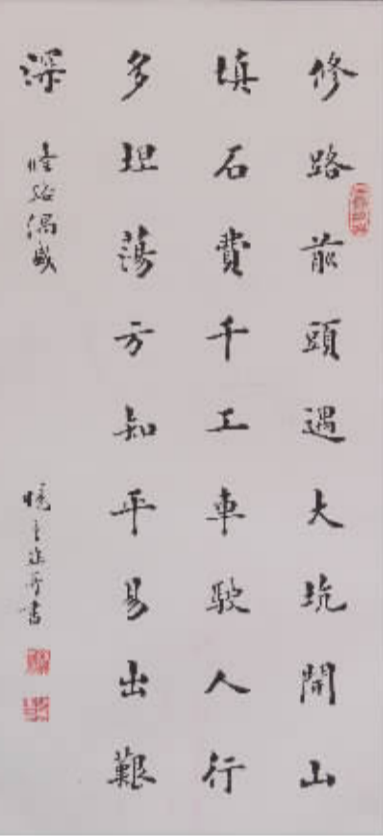 修路前頭遇大坑開山
填石費千工車駛人行
多坦蕩方知平易出艱
深
修路偶感
書